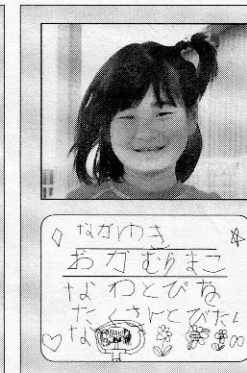 なかゆき
おかむらまこ
なわとびを
たくさんとびたい
な